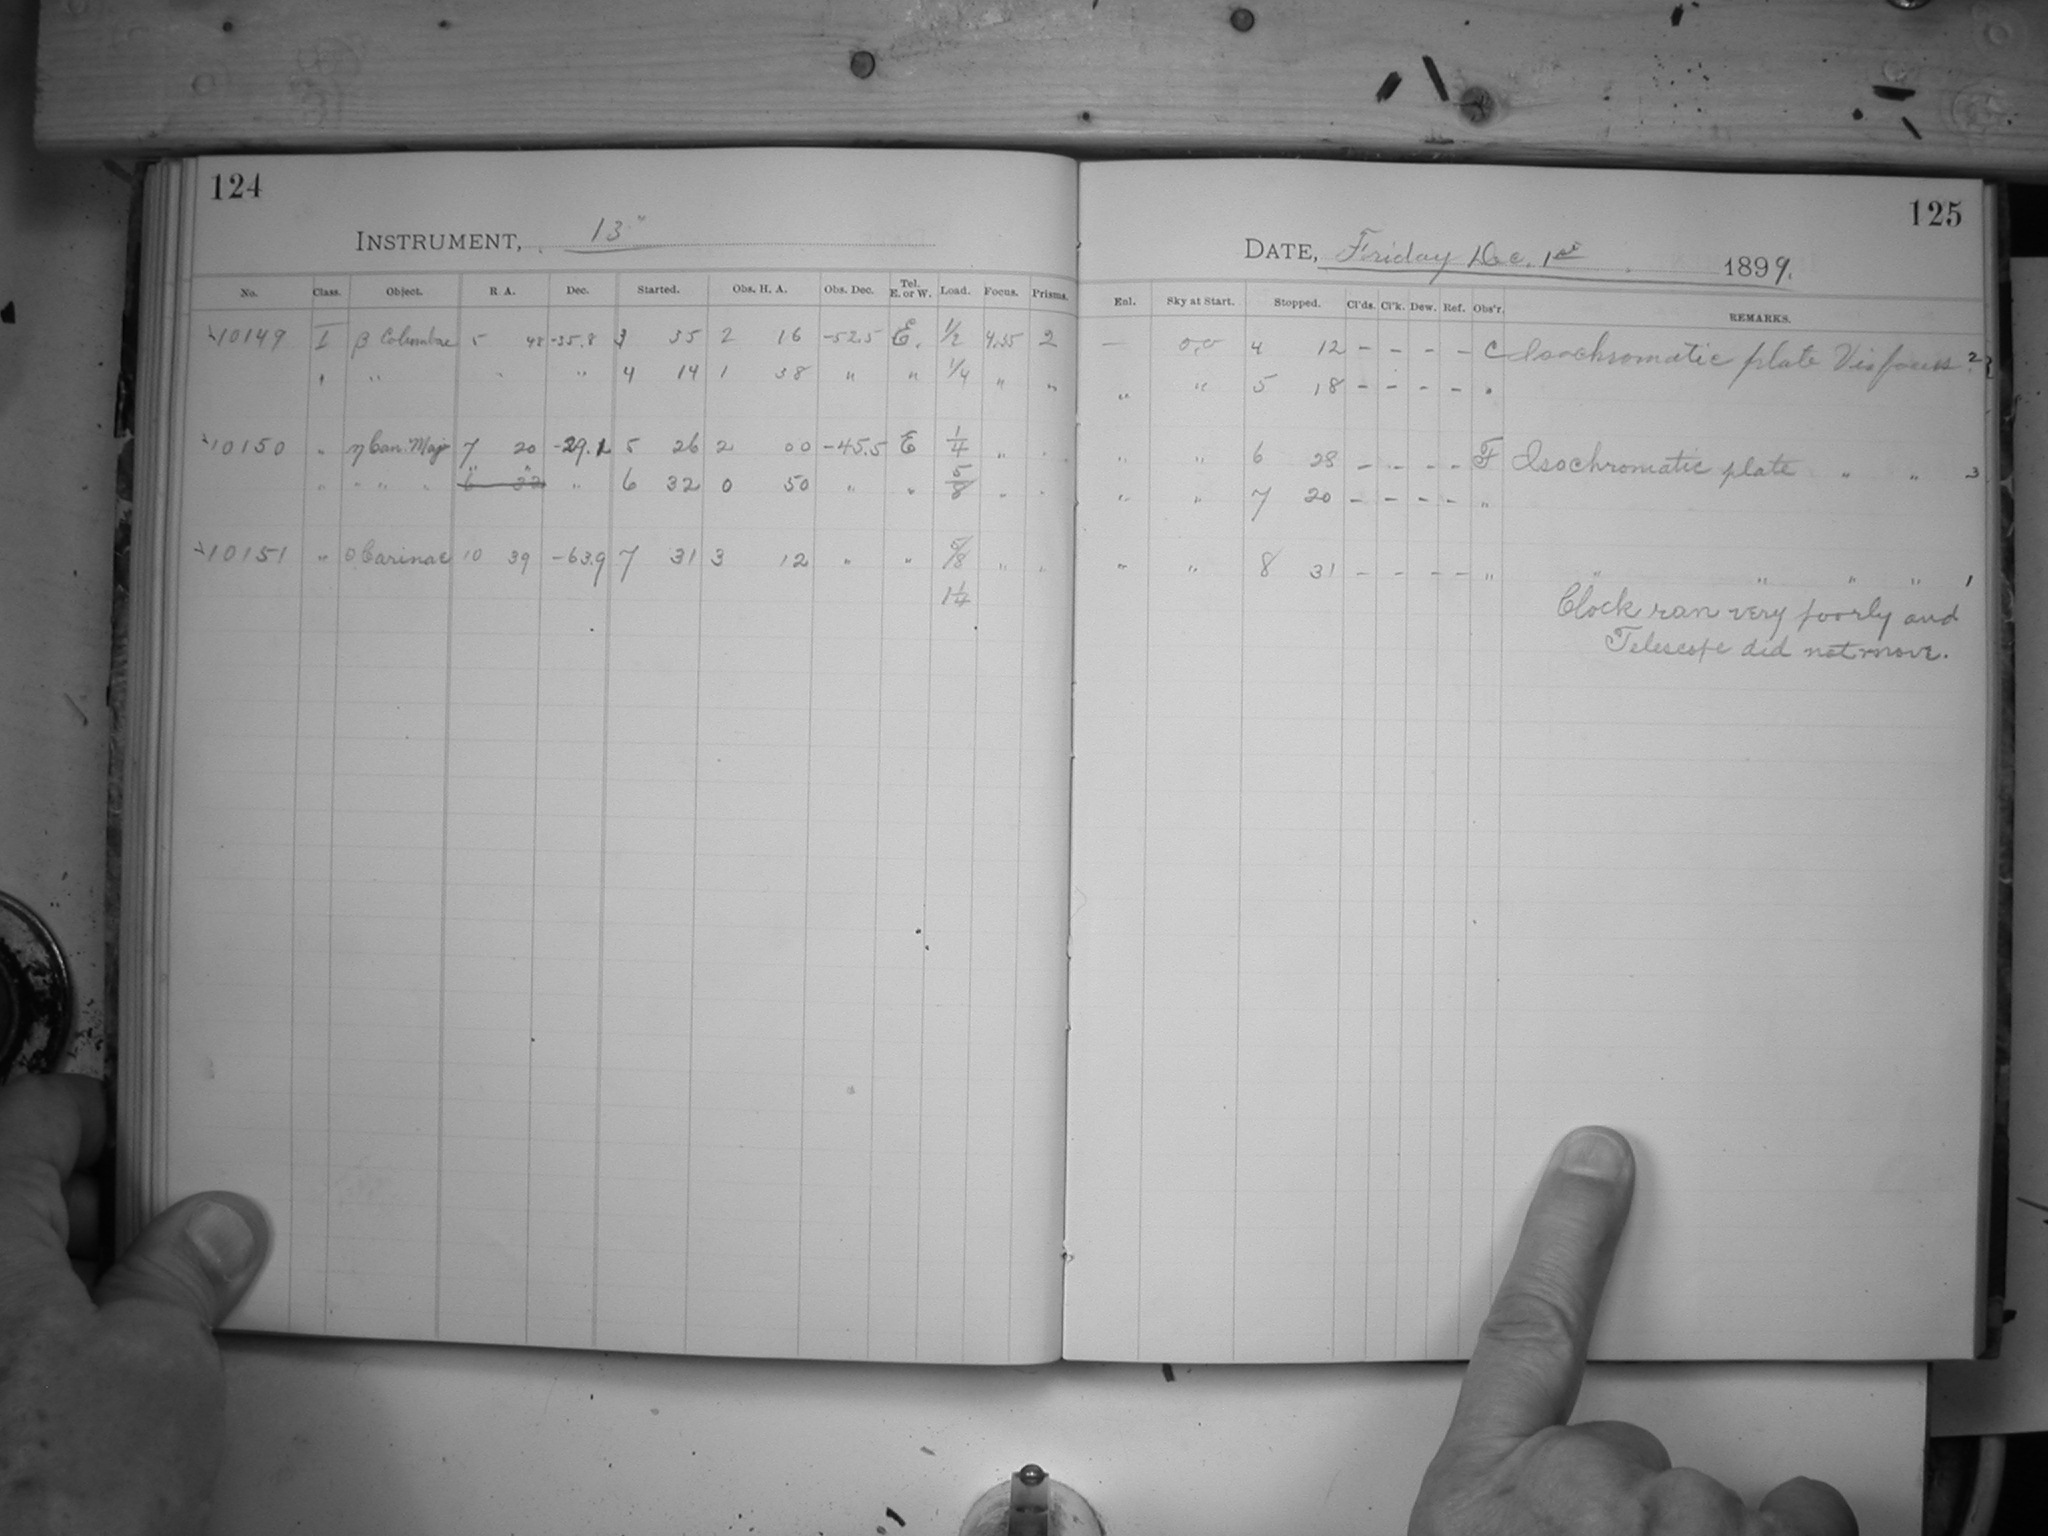 124
INSTRUMENT, 13"
No. Class. Object. R. A. Dec. Started. Obs. H. A. Obs. Dec. Tel. E. or W. Load. Focus. Prisms.
10149 I β Columbae 5 48 -35.8 3 35 2 16 -52.5 E. 1/2 4.55 2
" " " " 4 14 1 38 " " 1/4 " "
10150 " η Can. Maj 7 20 -29.1 5 26 2 00 -45.5 E 1/4 " "
" " " " " " " 6 32 0 50 " " 5/8 " "
10151 " θ Carinae 10 39 -63.9 7 31 3 12 " " 5/8 " "
1 1/4
125
DATE, Friday Dec. 1st 1899.
Enl. Sky at Start. Stopped. Cl'ds. Cl'k. Dew. Ref. Obs'r. REMARKS.
— 4 12 - - - - C Isochromatic plate Vis focus. 2
" " 5 18 - - - - "
" " 6 28 - - - - F Isochromatic plate " " 3
" " 7 20 - - - - "
" " 8 31 - - - - " " " " " 1
Clock ran very poorly and
Telescope did not move.